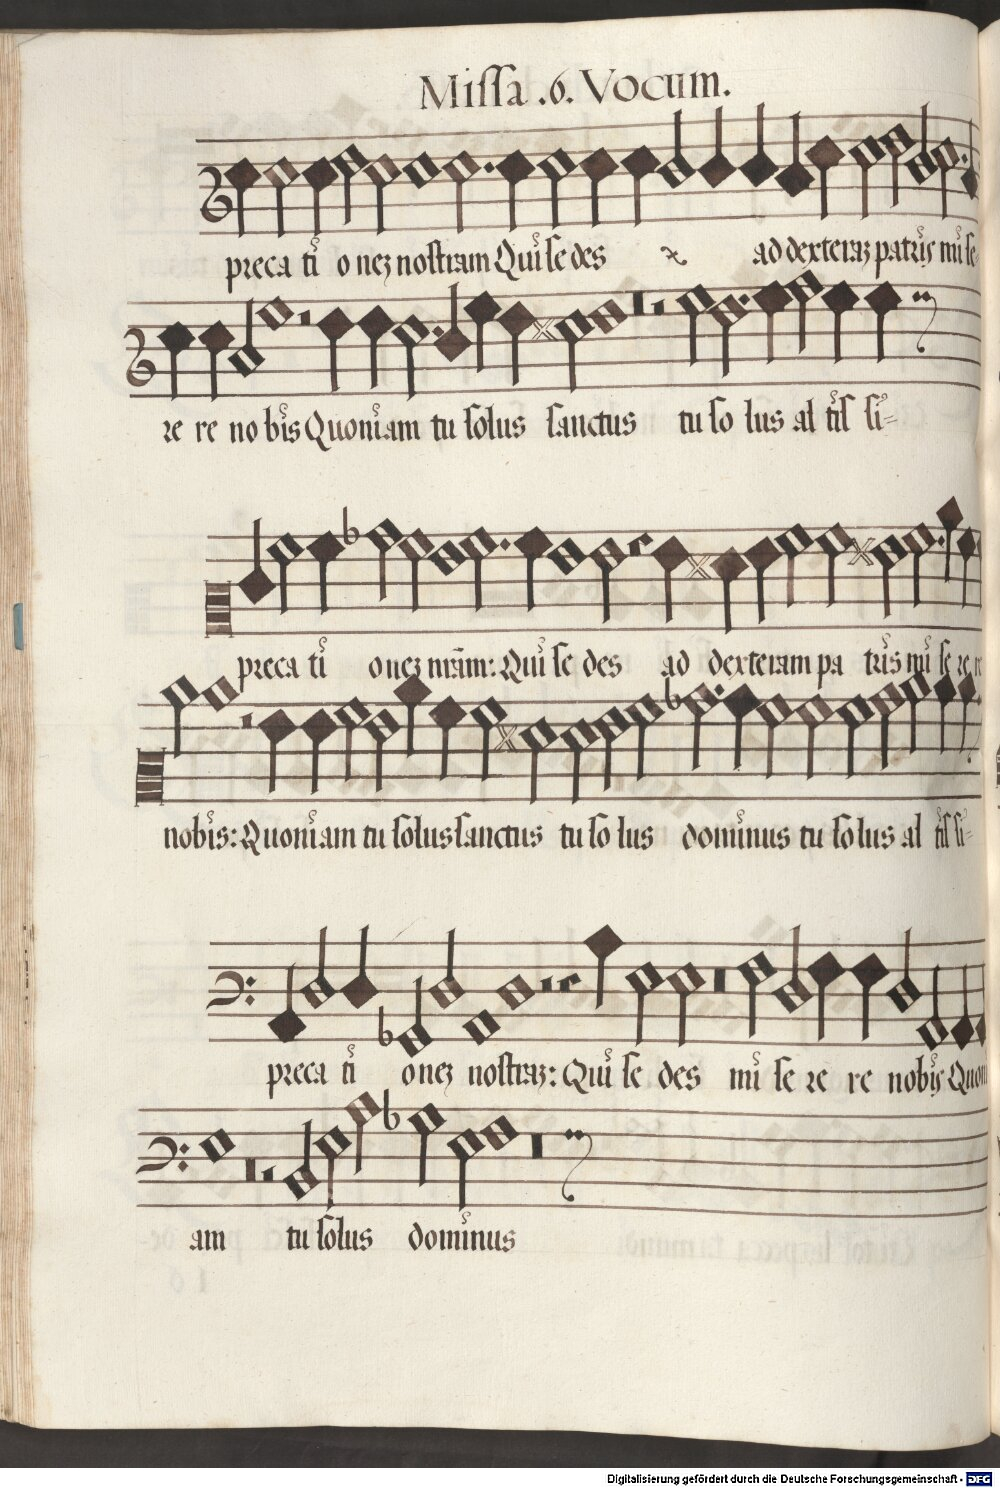 Missa .6. Vocum.
preca ti onez nostram Qui se des ad dexteraz patris mi se-
re re no bis Quoniam tu solus sanctus tu so lus al tis si=
preca ti onez nrām: Qui se des ad dexteram pa tris mi se re, re
nobis: Quoniam tu solus sanctus tu so lus dominus tu so lus al tis si=
preca ti onez nostraz: Qui se des mi se re re nobis Quoni
am tu solus dominus
Digitalisierung gefördert durch die Deutsche Forschungsgemeinschaft - DFG